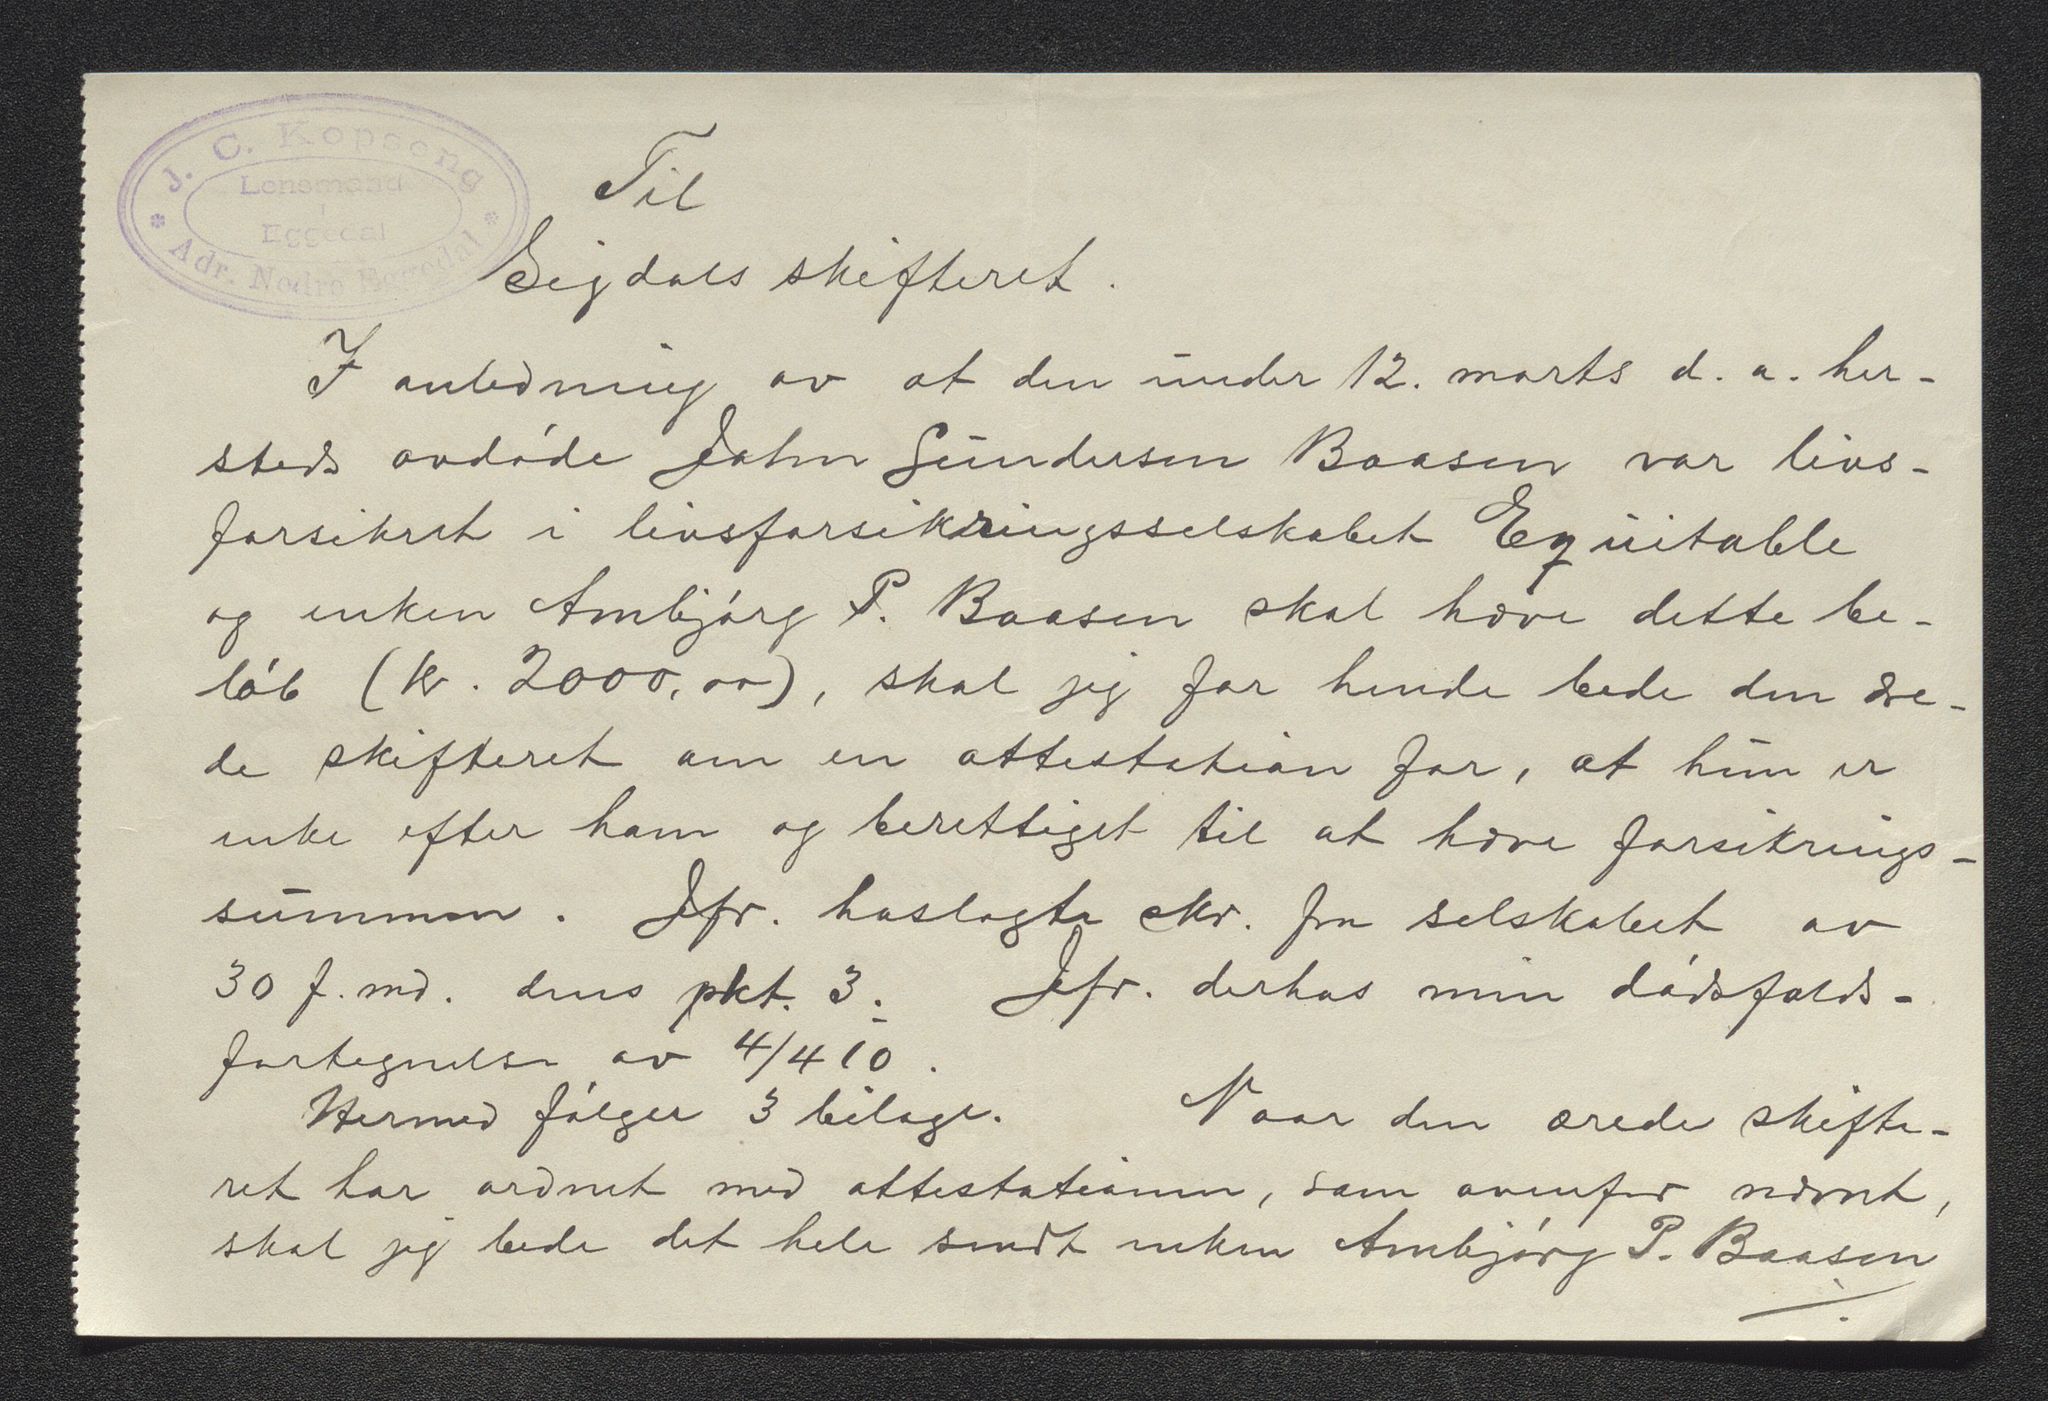 J. C. Kopseng
Lensmand
i
Eggedal
Adr. Nedre Eggedal
Til
Sigdals skifteret.
I anledning av at den under 12. marts d. a. her-
steds avdøde John Gundersen Baasen var livs-
forsikret i livsforsikringsselskabet Equitable
og enken Ambjørg P. Baasen skal hæve dette be-
løb (kr. 2000,00), skal jeg for hende bede den ære-
de skifteret om en attestation for, at hun er
enke efter ham og berettiget til at hæve forsikrings-
summen. Jfr. hoslagte skr. fra selskabet av
30 f. md. dens pkt. 3. Jfr. derhos min dødsfalds-
fortegnelse av 4/4 10.
Hermed følger 3 bilage. Naar den ærede skifte-
ret har ordnet med attestationen, som ovenfor nævnt,
skal jeg bede det hele sendt enken Ambjørg P. Baasen